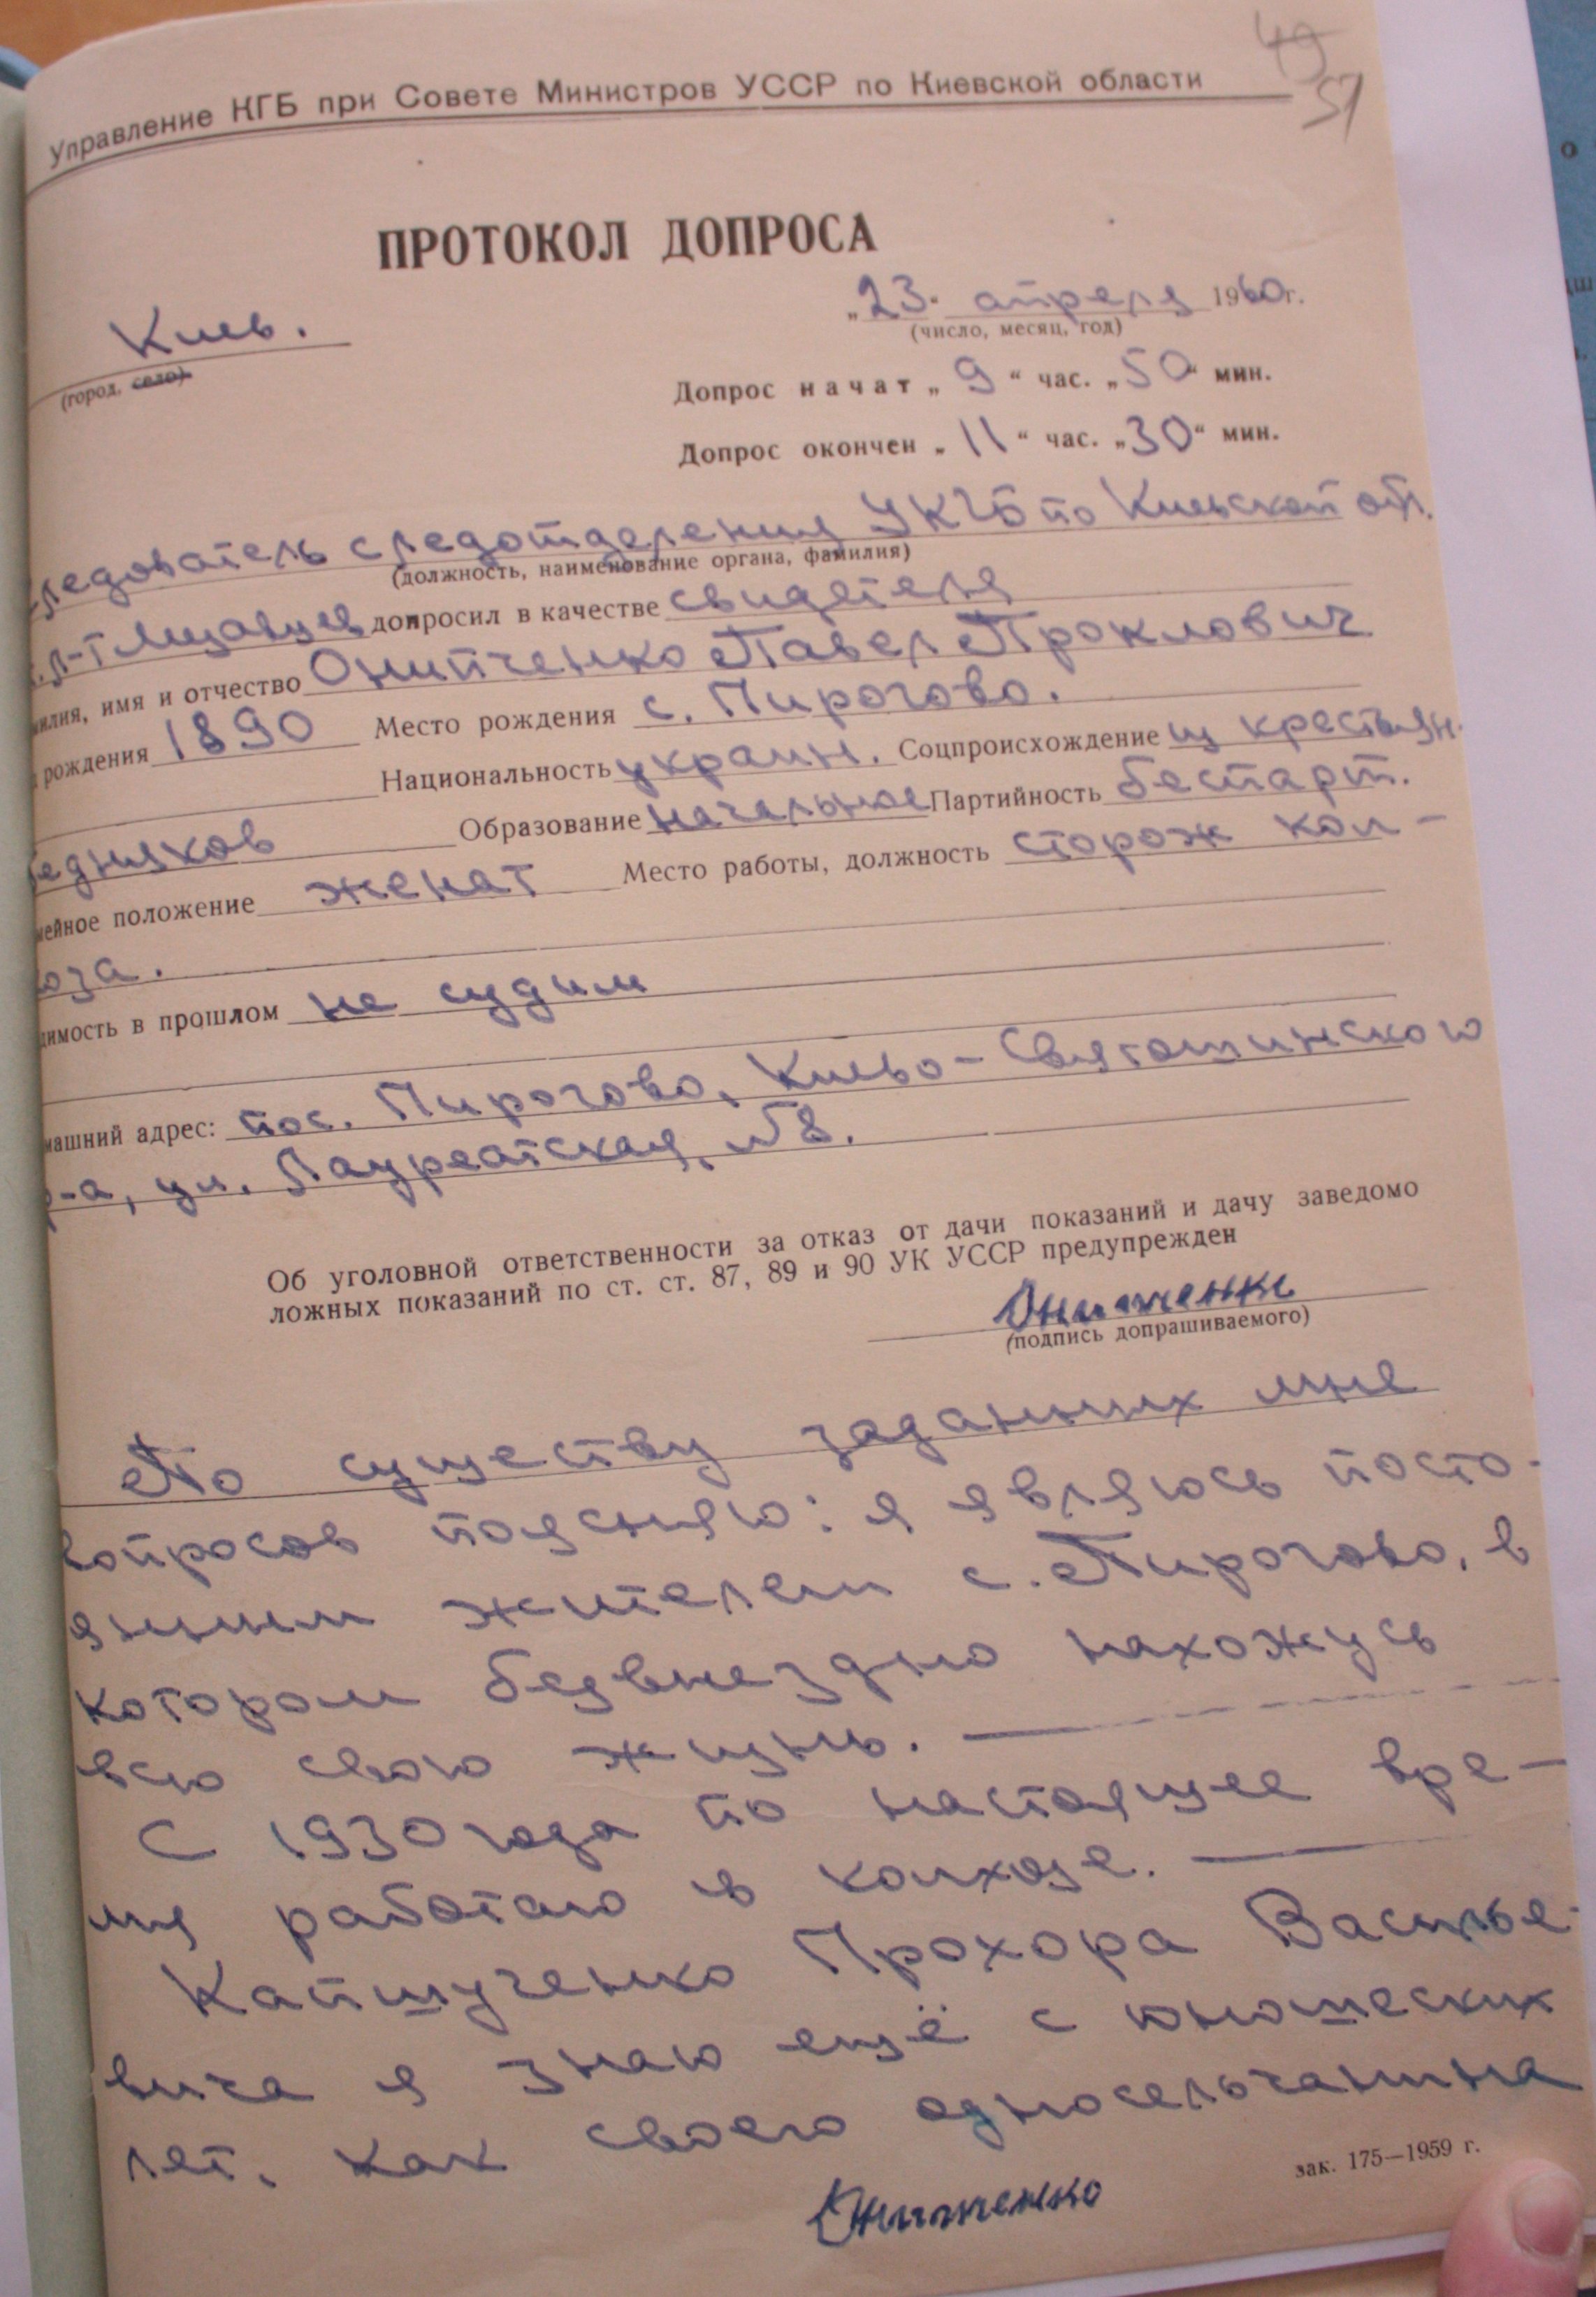 49
51
Управление КГБ при Совете Министров УССР по Киевской области
ПРОТОКОЛ ДОПРОСА
„23" апреля 1960 г.
(число, месяц, год)
Киев.
(город, село)
Допрос начат „9“ час. „50“ мин.
Допрос окончен „11“ час. „30“ мин.
ледователь следотделения УКГБ по Киевской обл.
(должность, наименование органа, фамилия)
л-т допросил в качестве свидетеля
милия, имя и отчество Онипченко Павел Проклович
рождения 1890 Место рождения с. Пирогово.
Национальность украин. Соцпроисхождение из крестьян-
бедняков Образование начальное Партийность беспарт.
мейное положение женат Место работы, должность сторож кол-
хоза.
димость в прошлом не судим
машний адрес: пос. Пирогово, Киево-Святошинского
р-а, ул. Лауреатская, №8.
Об уголовной ответственности за отказ от дачи показаний и дачу заведомо
ложных показаний по ст. ст. 87, 89 и 90 УК УССР предупрежден
Онипченко
(подпись допрашиваемого)
По существу заданных мне
вопросов поясняю: я являюсь посто-
янным жителем с. Пирогово, в
котором безвыездно нахожусь
всю свою жизнь.
С 1930 года по настоящее вре-
мя работаю в колхозе.
Капшученко Прохора Василье-
вича я знаю ещё с юношеских
лет, как своего односельчанина
Онипченко
зак. 175—1959 г.